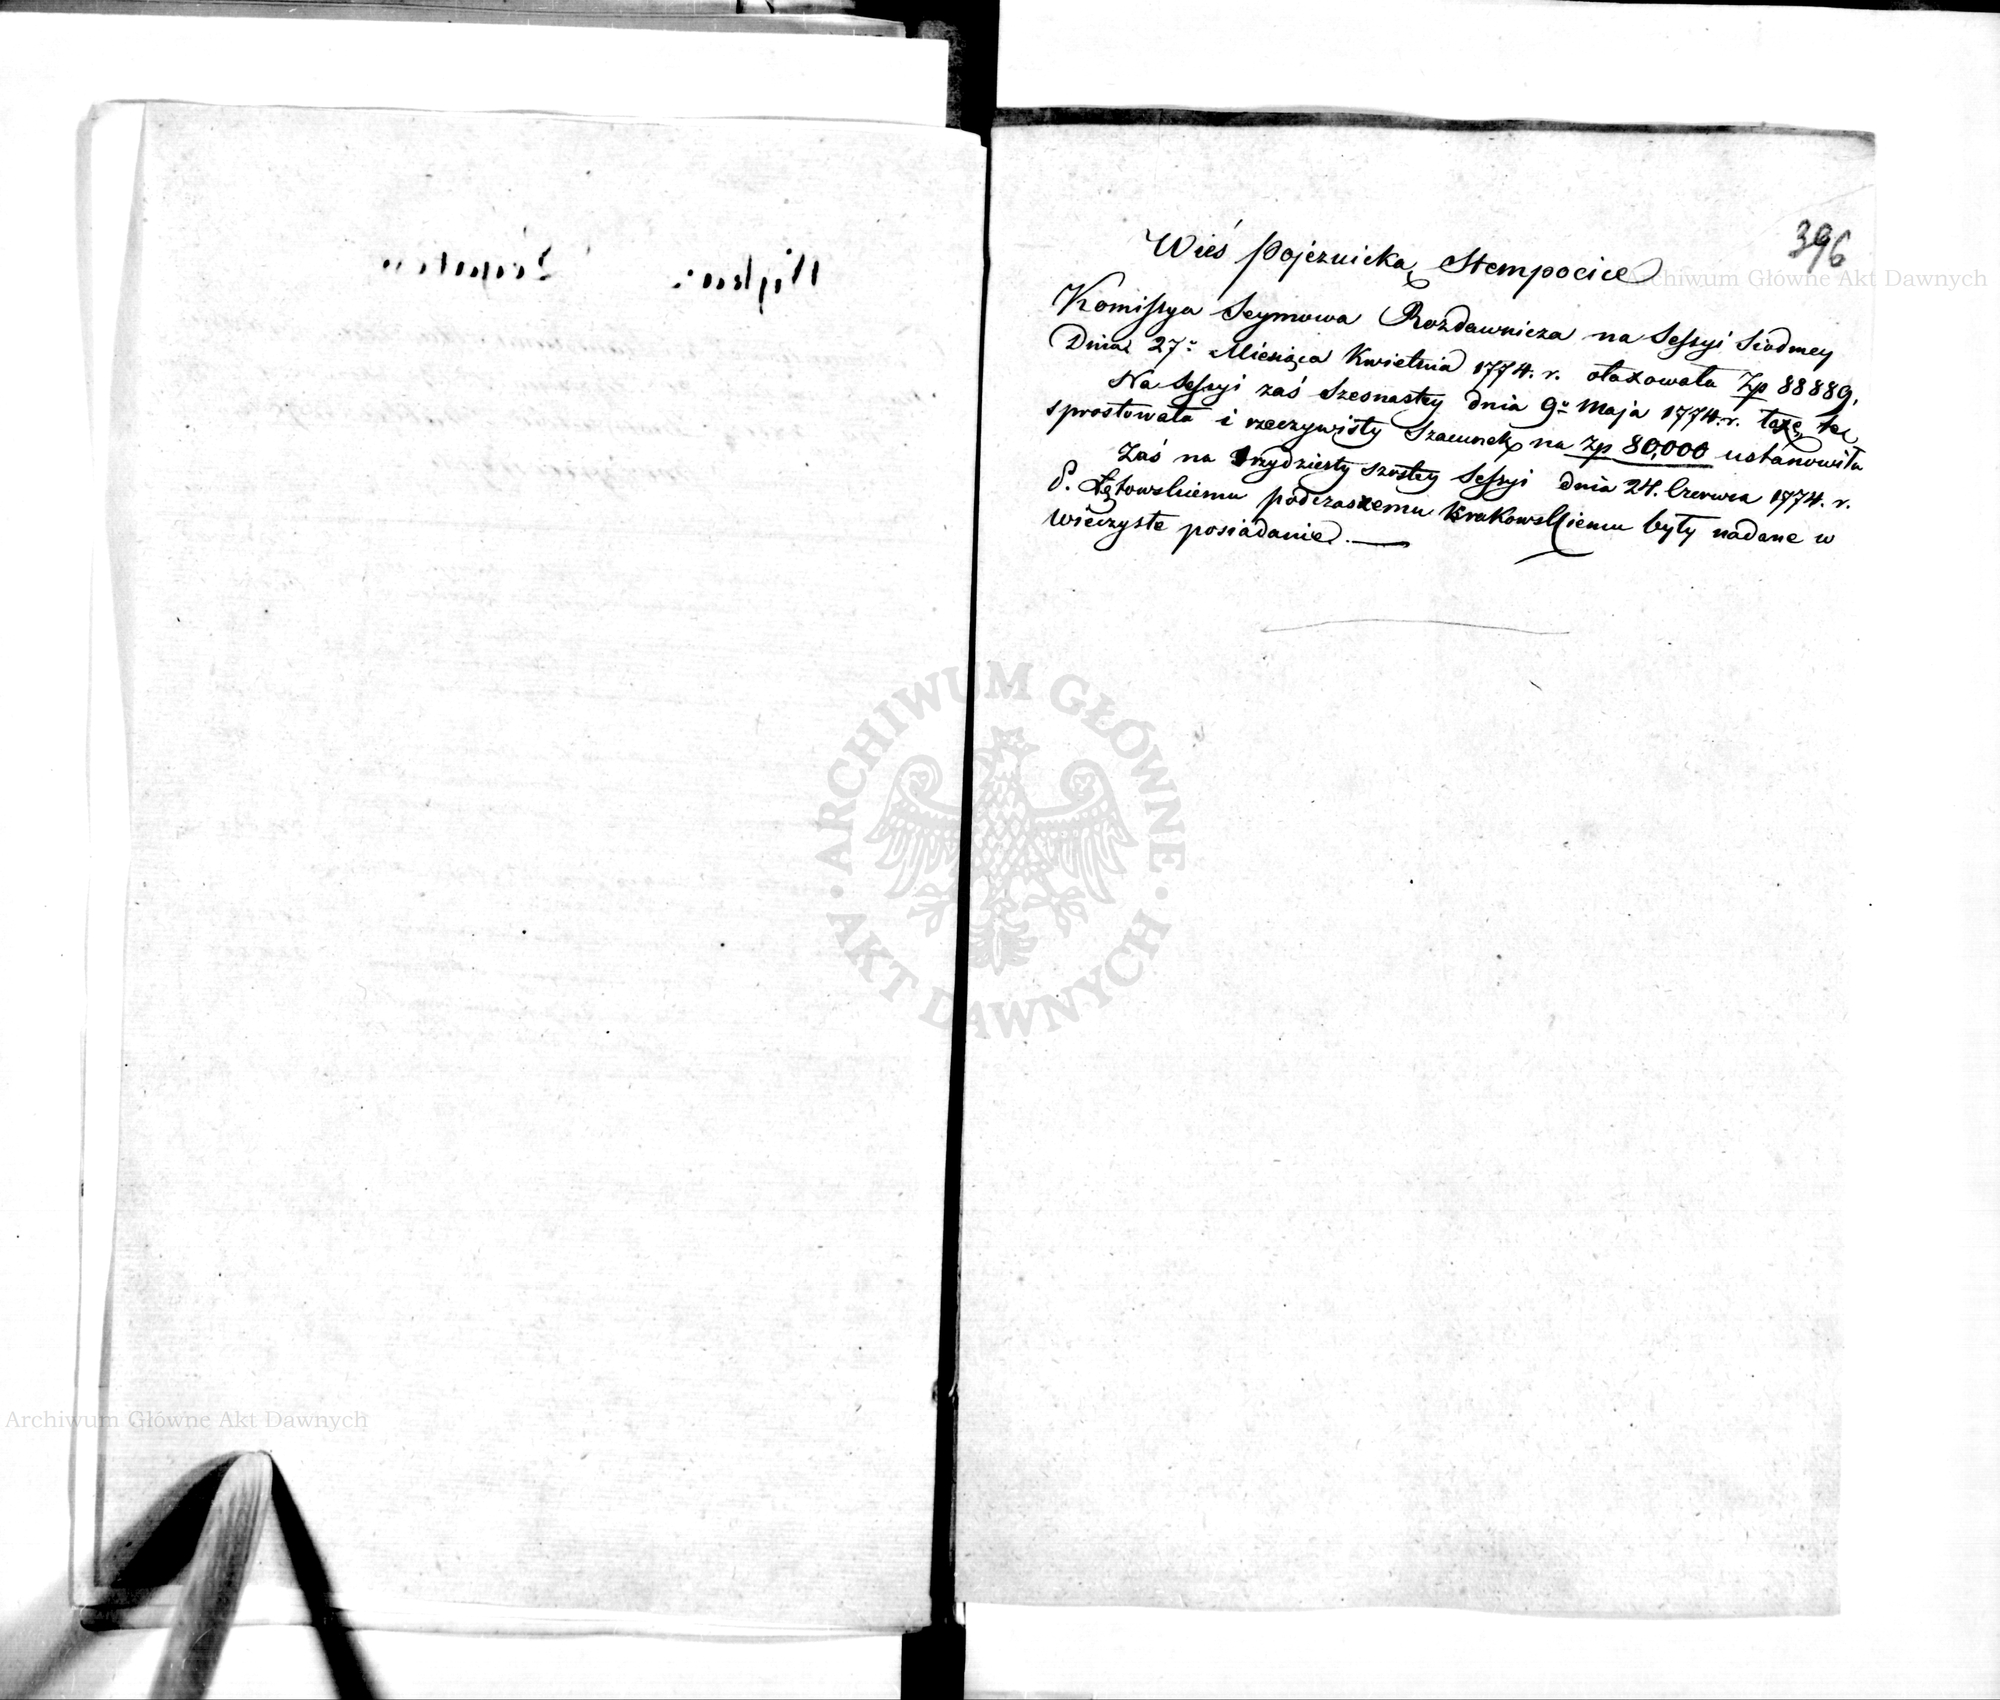 396
Wieś pojeznicką Stempocice
Komissya Seymowa Rozdawnicza na Sessyi Siodmey
Dnia 27º Miesiąca Kwietnia 1774. r. otaxowała Zp 88889.
Na Sessyi zaś Szesnastey dnia 9º Maja 1774. r. taxę tę
sprostowała i rzeczywisty Szacunek na Zp 80,000 ustanowiła
Zaś na trzydziesty szóstey Sessyi dnia 24. Czerwca 1774. r.
P. Łętowskiemu podczaszemu Krakowskiemu były nadane w
wieczyste posiadanie.
Archiwum Główne Akt Dawnych
ARCHIWUM GŁÓWNE
AKT DAWNYCH
Archiwum Główne Akt Dawnych